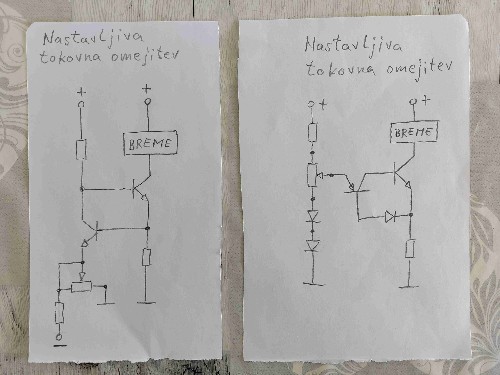 Nastavljiva
tokovna omejitev
+
+
BREME
Nastavljiva
tokovna omejitev
+
+
BREME